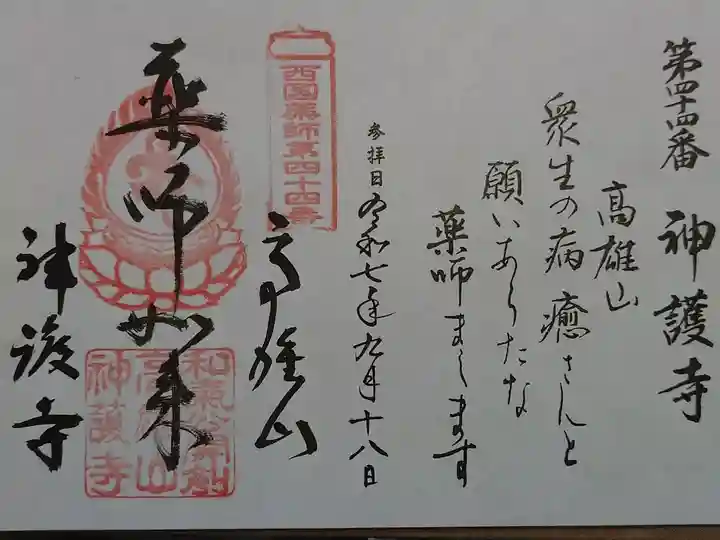 第四十四番 神護寺
高雄山
衆生の病 癒さんと
願いあらたな
薬師まします
参拝日 令和七年九月十八日
西国薬師第四十四番
高雄山
薬师如来
神護寺
和氣公創
高雄山
神護寺